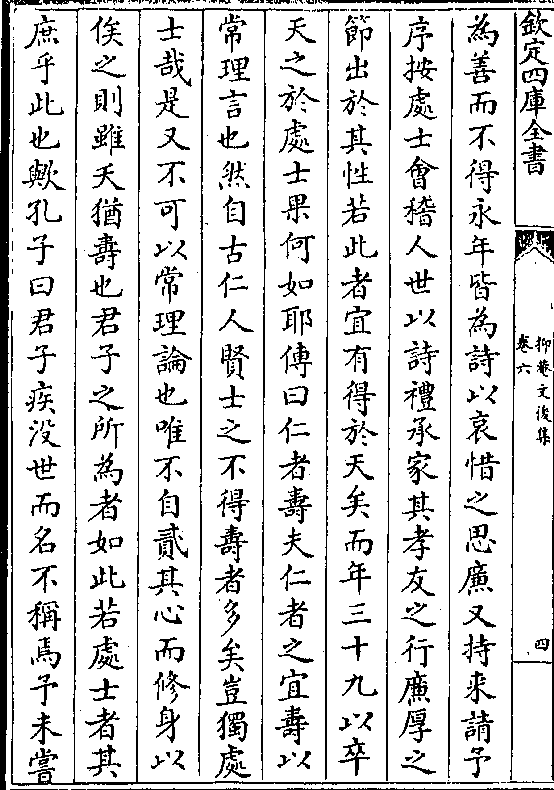 欽定四庫全書
抑菴文後集
卷六
四
為善而不得永年皆為詩以哀惜之思廉又持来請予
序按處士會稽人世以詩禮承家其孝友之行廉厚之
節出於其性若此者宜有得於天矣而年三十九以卒
天之於處士果何如耶傳曰仁者壽夫仁者之宜壽以
常理言也然自古仁人賢士之不得壽者多矣豈獨處
士哉是又不可以常理論也唯不自貳其心而修身以
俟之則雖夭猶壽也君子之所為者如此若處士者其
庶乎此也歟孔子曰君子疾没世而名不稱焉予未嘗